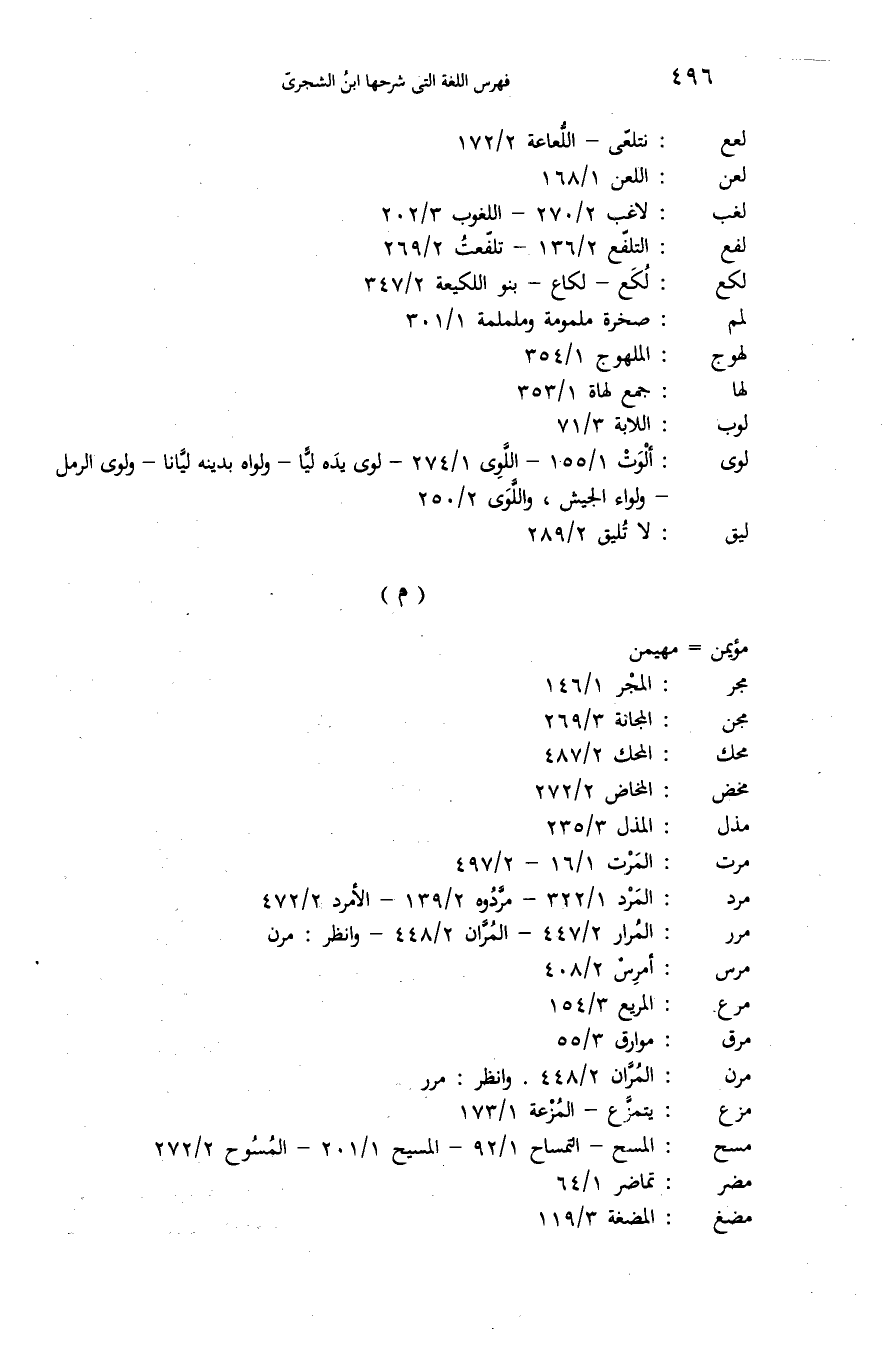 ٤٩٦ فهرس اللغة التى شرحها ابنُ الشجرىّ
لعع : نتلعّى – اللُّعاعة ١٧٢/٢
لعن : اللعن ١٦٨/١
لغب : لاغب ٢٧٠/٢ – اللغوب ٢٠٢/٣
لفع : التلفّع ١٣٦/٢ – تلفّعتُ ٢٦٩/٢
لكع : لُكَع – لكاع – بنو اللكيعة ٣٤٧/٢
لمم : صخرة ملمومة وململمة ٣٠١/١
لهوج : الملهوج ٣٥٤/١
لها : جمع لهاة ٣٥٣/١
لوب : اللابة ٧١/٣
لوى : ألْوَتْ ١٥٥/١ – اللَّوِى ٢٧٤/١ – لوى يدَه ليًّا – ولواه بدينه ليَّانا – ولوى الرمل
– ولواء الجيش ، واللَّوَى ٢٥٠/٢
ليق : لا تُليق ٢٨٩/٢
( م )
مؤيمن = مهيمن
مجر : المجْر ١٤٦/١
مجن : المجانة ٢٦٩/٣
محك : المحك ٤٨٧/٢
مخض : المخاض ٢٧٢/٢
مذل : المذل ٢٣٥/٣
مرت : المَرْت ١٦/١ – ٤٩٧/٢
مرد : المَرْد ٣٢٢/١ – مرَّدُوه ١٣٩/٢ – الأمرد ٤٧٢/٢
مرر : المُرار ٤٤٧/٢ – المُرَّان ٤٤٨/٢ – وانظر : مرن
مرس : أمرِسْ ٤٠٨/٢
مرع : المريع ١٥٤/٣
مرق : موارق ٥٥/٣
مرن : المُرَّان ٤٤٨/٢ . وانظر : مرر
مزع : يتمزَّع – المُزْعة ١٧٣/١
مسح : المسح – التمساح ٩٢/١ – المسيح ٢٠١/١ – المُسُوح ٢٧٢/٢
مضر : تماضر ٦٤/١
مضغ : المضغة ١١٩/٣